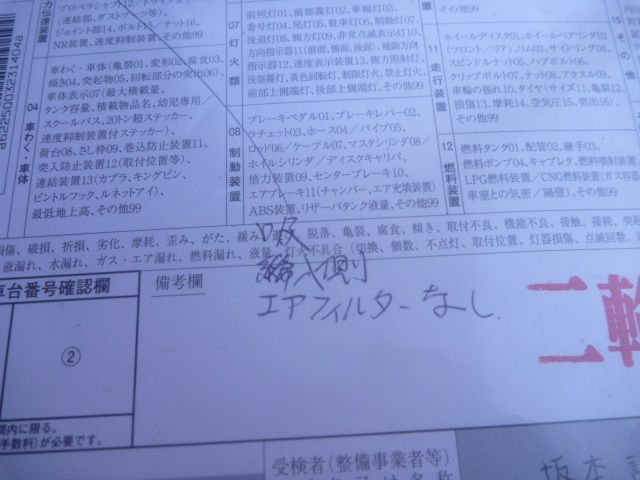 a622500323140 4a
力伝達装置
プロペラシャフト12
（連結部、ダストブーツ等）、
ジョイント部14、ボルト15／ナット16、
NR装置、速度抑制装置、その他99
04 車わく・車体
車わく・車体（亀裂01、変形02、腐食03、
傾き04、突起物05、回転部分の突出06）、
車体表示07（最大積載量、
タンク容量、積載物品名、幼児専用、
スクールバス、20トン超ステッカー、
速度抑制装置付ステッカー）、
荷台08、さし枠09、巻込防止装置11、
突入防止装置12（取付位置等）、
連結装置13（カプラ、キングピン、
ピントルフック、ルネットアイ）、
最低地上高、その他99
07 灯火類
前照灯01、前部霧灯02、車幅灯03、
番号灯04、尾灯05、駐車灯06、制動灯07、
後退灯08、側方灯09、非常点滅表示灯10、
方向指示器11（前面、側面、後面）、補助方向
指示器12、速度表示装置13、側方照射灯、
後部霧灯、黄色回転灯、制限灯火、禁止灯火、
前部上側端灯、後部上側端灯、その他99
08 制動装置
ブレーキペダル01、ブレーキレバー02、
ラチェット03、ホース04／パイプ05、
ロッド06／ケーブル07、マスタシリンダ08／
ホイルシリンダ／ディスクキャリパ、
倍力装置09、センターブレーキ10、
エアブレーキ11（チャンバー、エア充填装置）
ABS装置、リザーバタンク液量、その他99
11 走行装置
その他99
ホイールディスク01、ホイールベアリング02
（フロント／リア）、リム03、サイドリング04、
スピンドルナット05、ハブボルト06、
クリップボルト07、ナット08、アクスル09、
車輪の振れ10、タイヤ（サイズ11、亀裂12
損傷13、摩耗14、空気圧15、突出16）、
その他99
12 燃料装置
燃料タンク01、配管02、継手03、
燃料ポンプ04、キャブレタ、燃料噴射装置
LPG燃料装置／CNG燃料装置（ガス容器
車室との気密／隔壁）、その他99
損傷、破損、折損、劣化、摩耗、歪み、がた、緩み、脱落、亀裂、腐食、傾き、取付不良、機能不良、接触、接続、突出
液漏れ、水漏れ、ガス・エア漏れ、燃料漏れ、液量、灯火不具合（切換、個数、不点灯、取付位置、灯器損傷、点滅回数、
車台番号確認欄
②
備考欄
吸
側
エアフィルターなし
二輪
間内に限る。
手数料）が必要です。
受検者（整備事業者等）
坂本